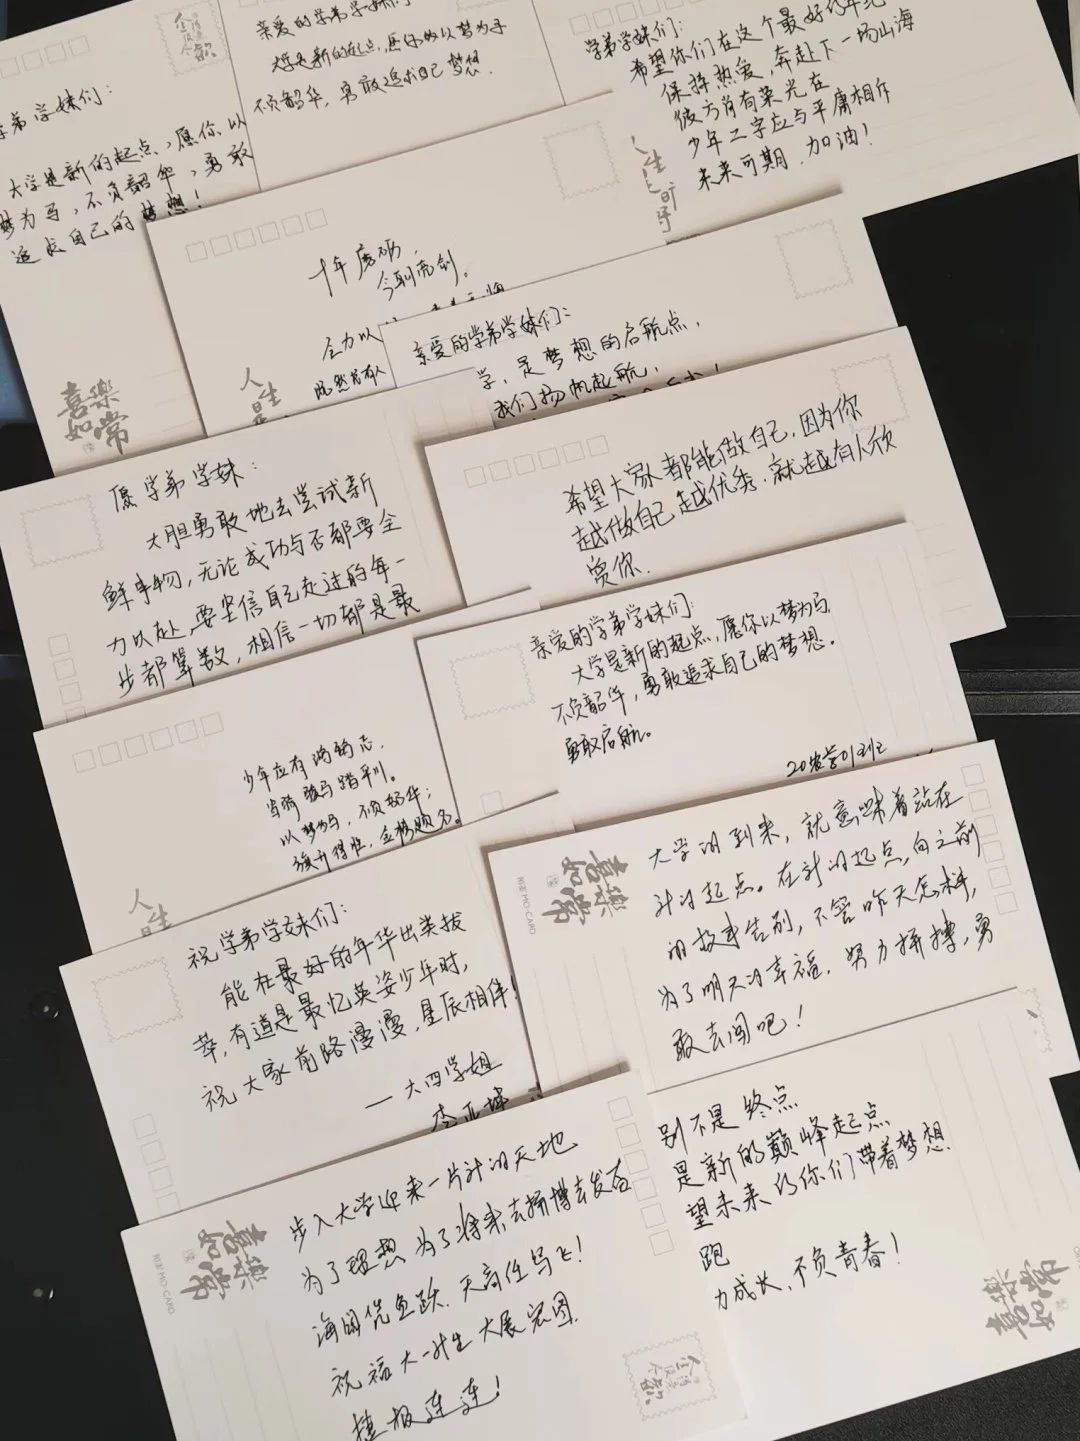 学弟学妹们：
大学是新的起点，愿你以
梦为马，不负韶华，勇敢
追求自己的梦想！
喜樂
如常
亲爱的学弟学妹们
大学是新的起点，愿你以梦为
不负韶华，勇敢追求自己梦想.
学弟学妹们：
希望你们在这个最好的年纪
保持热爱，奔赴下一场山海
彼方尚有荣光在
少年二字应与平庸相斥
未来可期，加油！
人生
旷野
十年磨砺，
今朝亮剑。
全力以
既然
人生
亲爱的学弟学妹们：
学，是梦想的启航点，
我们扬帆起航，
愿学弟学妹：
大胆勇敢地去尝试新
鲜事物，无论成功与否都要全
力以赴，要坚信自己走过的每一
步都算数，相信一切都是最
希望大家都能做自己，因为你
越做自己越优秀，就越有人欣
赏你.
亲爱的学弟学妹们：
大学是新的起点，愿你以梦为马
不负韶华，勇敢追求自己的梦想。
勇敢启航。
少年应有鸿鹄志，
当骑骏马踏平川。
以梦为马，不负韶华；
旗开得胜，金榜题名。
人生
大学的到来，就意味着站在
新的起点。在新的起点，向之前
的故事告别，不管昨天怎么样，
为了明天的幸福，努力拼搏，勇
敢去闯吧！
喜樂
如常
MO·CARD
祝学弟学妹们：
能在最好的年华出类拔
萃，有道是最忆英姿少年时，
祝大家前路漫漫，星辰相伴！
——大四学姐
步入大学迎来一片新的天地
为了理想 为了将来去拼搏去发奋
海阔凭鱼跃，天高任鸟飞！
祝福大一新生大展宏图
捷报连连！
喜樂
如常
MO·CARD
别不是终点
是新的巅峰起点
望未来的你们带着梦想
跑
力成长，不负青春！